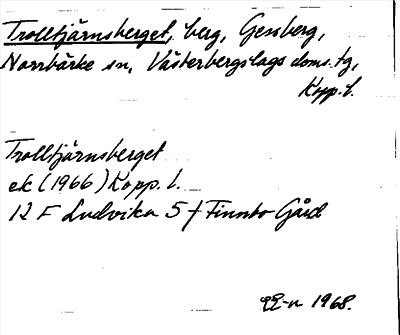 Trolltjärnsberget, berg, Gessberg,
Norrbärke sn, Västerbergslags doms. tg,
Kopp. l.
Trolltjärnsberget
ek (1966) Kopp. l.
12 F Ludvika 5 f Finnbo Gård
1968.